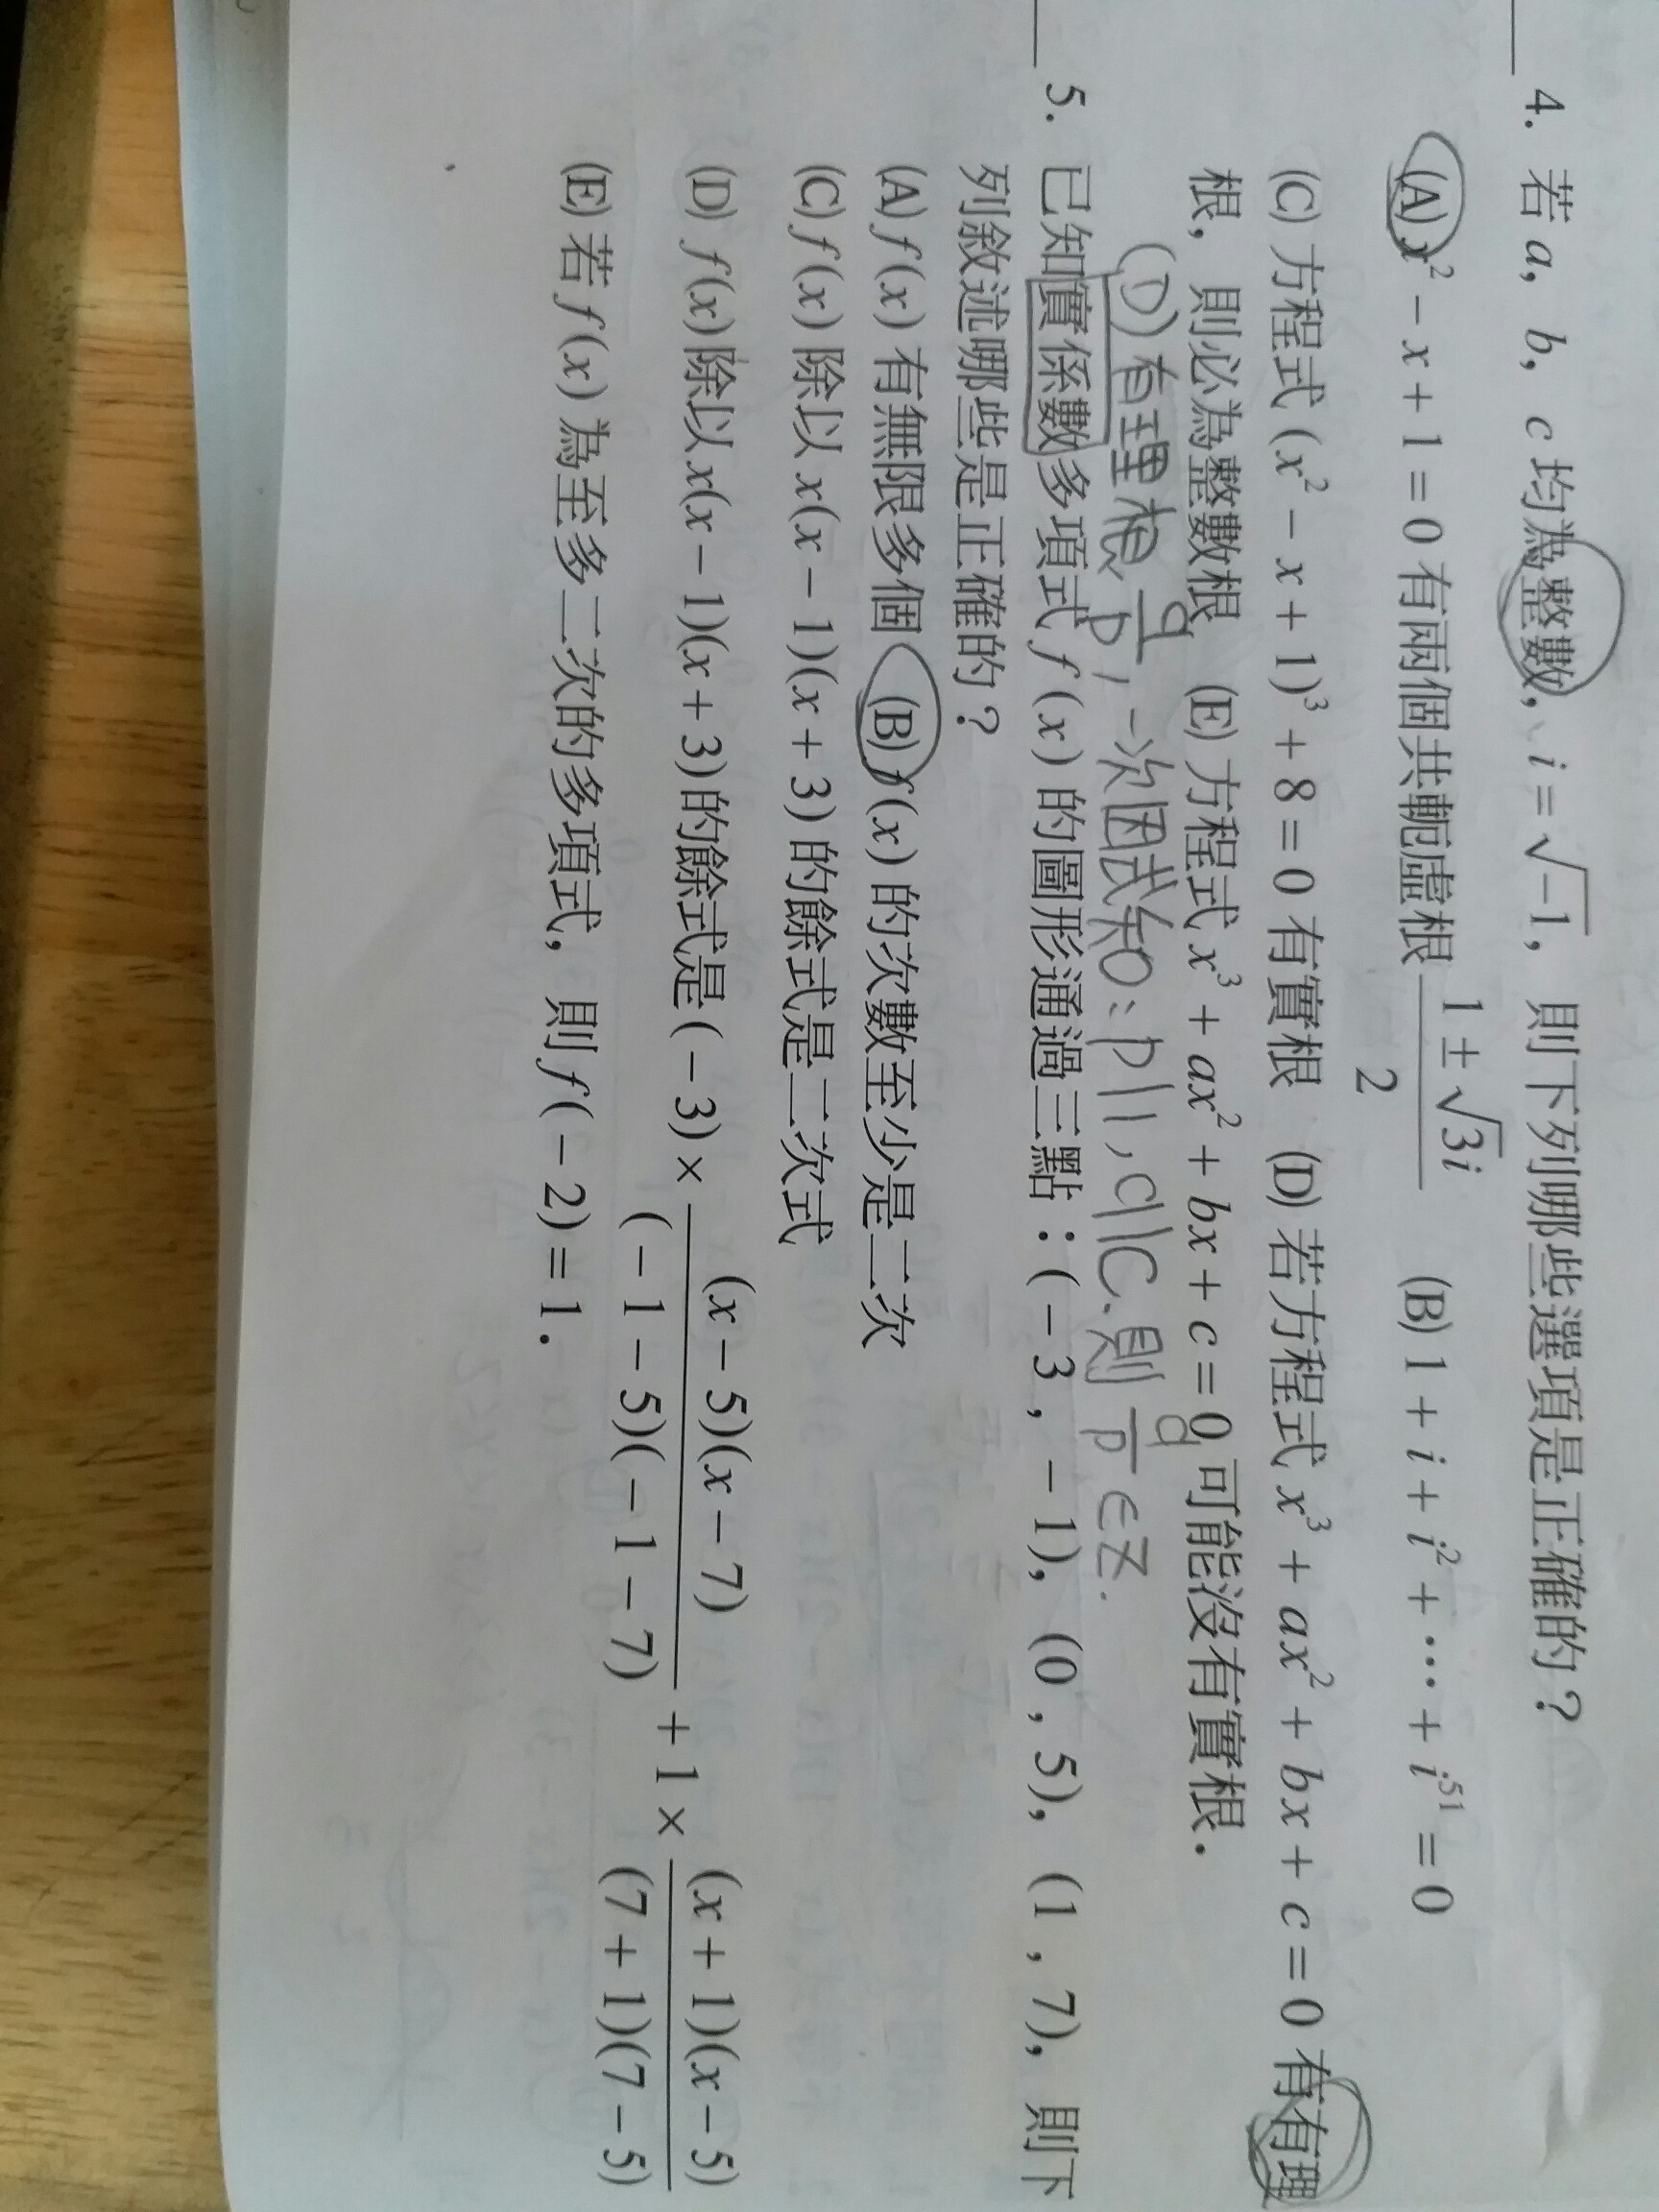 4. 若 a, b, c 均為整數, i = √-1, 則下列哪些選項是正確的?
(A) x² - x + 1 = 0 有兩個共軛虛根 (1 ± √3i)/2 (B) 1 + i + i² + ⋯ + i⁵¹ = 0
(C) 方程式 (x² - x + 1)³ + 8 = 0 有實根 (D) 若方程式 x³ + ax² + bx + c = 0 有有理
根, 則必為整數根 (E) 方程式 x³ + ax² + bx + c = 0 可能沒有實根.
(D) 有理根 q/p, 一次因式知: p|1, q|c. 則 q/p ∈ Z.
5. 已知實係數多項式 f(x) 的圖形通過三點: (-3, -1), (0, 5), (1, 7), 則下
列敘述哪些是正確的?
(A) f(x) 有無限多個 (B) f(x) 的次數至少是二次
(C) f(x) 除以 x(x - 1)(x + 3) 的餘式是二次式
(D) f(x) 除以 x(x - 1)(x + 3) 的餘式是 (-3) × (x - 5)(x - 7)/(-1 - 5)(-1 - 7) + 1 × (x + 1)(x - 5)/(7 + 1)(7 - 5)
(E) 若 f(x) 為至多二次的多項式, 則 f(-2) = 1.